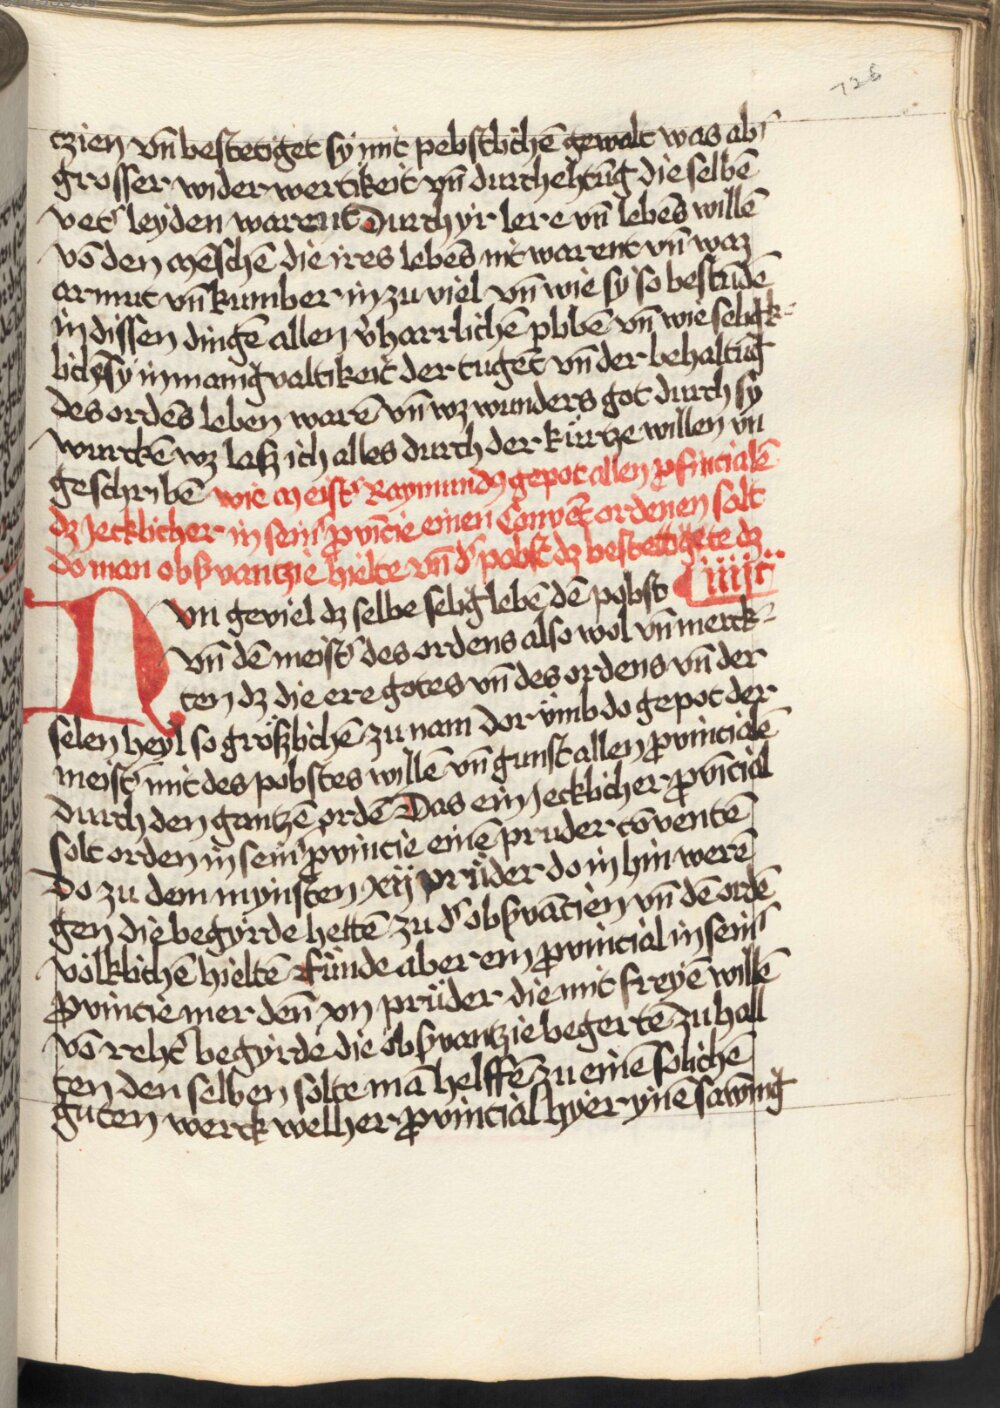 728
tzien vn̄ bestetiget sy mit pebstlichē gewalt was ab͛
grosser wider wertikeit vn̄ durchehtūg die selbē
vet͛ leyden warent Durch yr lere vn̄ lebēs willē
vō den mēschē die ires lebēs nit warent vn̄ waz
armut vn̄ kumber in zu viel vn̄ wie sy so bestūdē
in dissen dingē allen v͛harrlichē plibē vn̄ wie seligk-
lich sy in manig͛valtikeit der tugēt vn̄ der behaltūg
des ordēs leben warē vn̄ wz wunders got durch sy
wurckē wz lasz ich alles durch der kürtze willen vn
geschribē wie meist͛ Raymundꝯ gepot allen ꝓfincialē
dz Jecklicher in sein͛ ꝓvīcie einen Convēt ordenen solt
do man obs͛vantzie hielte vn̄ d͛ pobst dz bestettigete dz
Nvn geviel dz selbe selig lebē dē pobst C iiij
vn̄ dē meist͛ des ordens also wol vn̄ merck-
ten dz die ere gotes vn̄ des ordens vn̄ der
selen heyl so gröszlichē zu nam dor vmb do gepot der
meist͛ mit des pobstes willē vn̄ gunst allen ꝓvincialē
durch den gantzē ordē Das ein Jecklicher ꝓvīcial
solt orden in sein͛ ꝓvincie einē pruder cōventē
do zu dem mynsten xij prüder do in hin werē
gen die begyrde hettē zu d͛ obs͛vācien vn̄ dē ordē
völklichē hieltē Fünde aber ein ꝓvincial in sein͛
ꝓvincie mer den̄ xij prüder die mit freyē willē
vō reht͛ begyrde die obs͛vantzie begertē zu hall
ten den selben solte mā helffē zu einē solichē
guten werck welher ꝓvincial hyer ynē sawmig